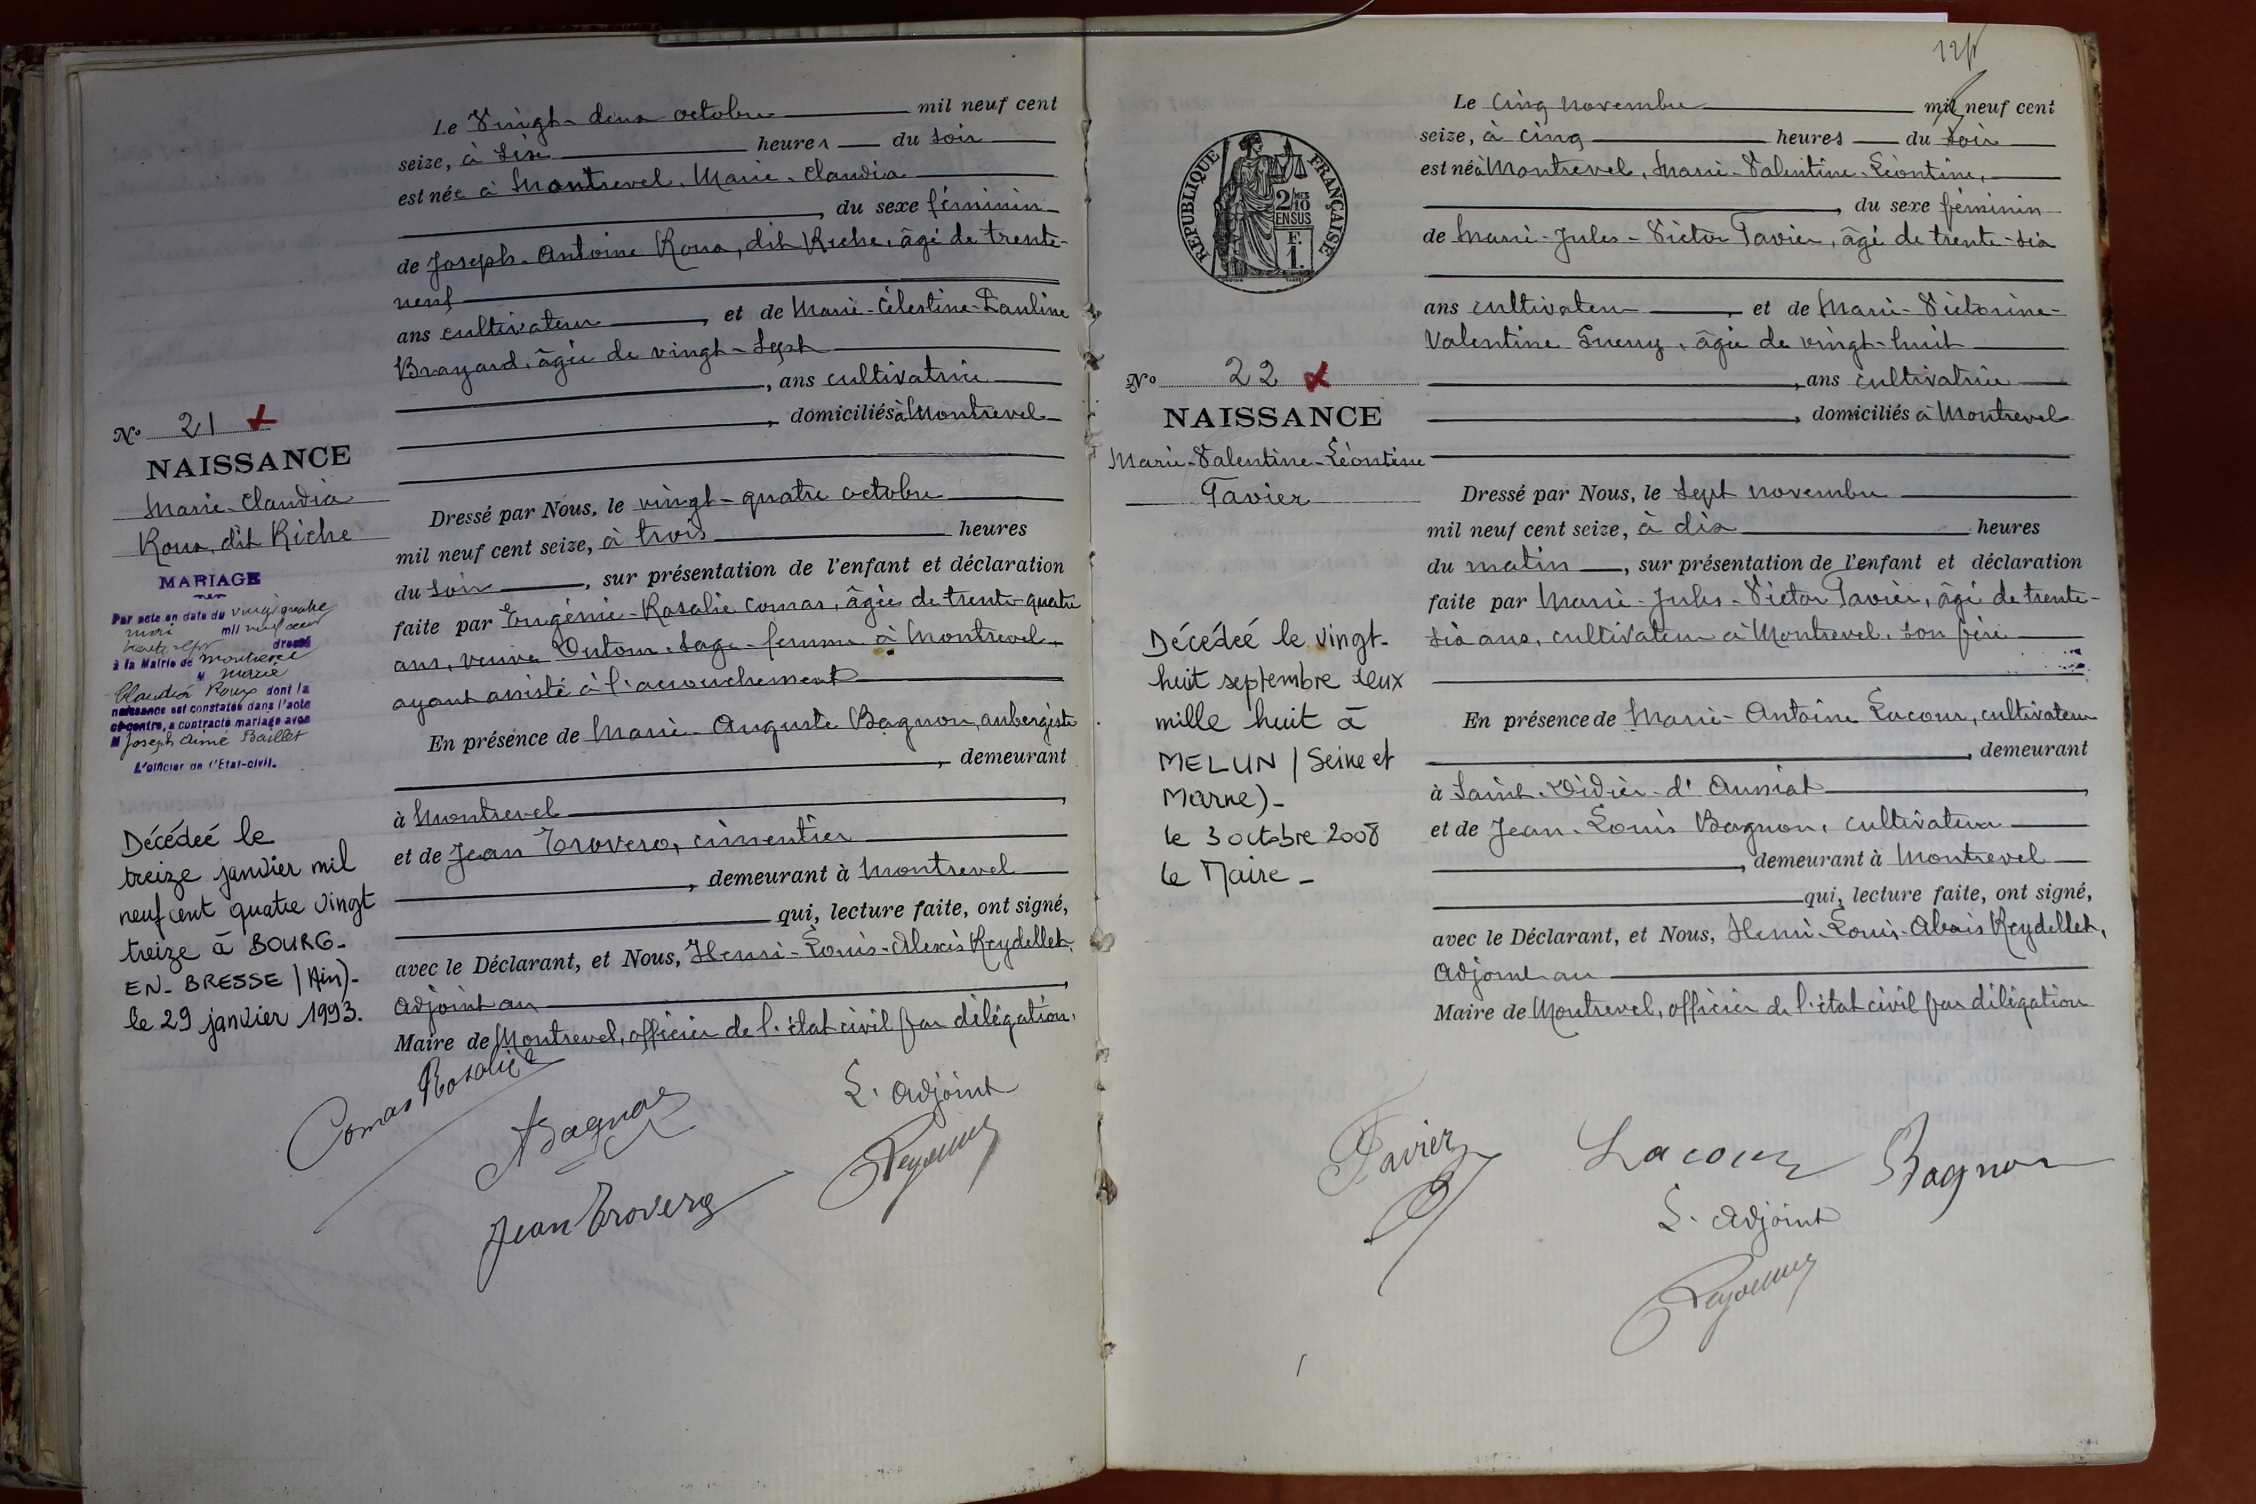 Le Vingt-deux octobre mil neuf cent
seize, à six heures du soir
est née à Montrevel, Marie-Claudia
, du sexe féminin
de Joseph-Antoine Roux, dit Riche, âgé de trente-
neuf
ans cultivateur, et de Marie-Célestine-Pauline
Brayard, âgée de vingt-sept
, ans cultivatrice
, domiciliés à Montrevel
No 21
NAISSANCE
Marie-Claudia
Roux, dit Riche
MARIAGE
Par acte en date du vingt quatre
mil neuf cent
dressé
à la Mairie de Montrevel
M Marie
Claudia Roux dont la
naissance est constatée dans l'acte
ci-contre, a contracté mariage avec
M Joseph Aimé Baillet
L'officier de l'Etat-civil.
Décédée le
treize janvier mil
neuf cent quatre vingt
treize à BOURG-
EN-BRESSE (Ain)-
le 29 janvier 1993.
Dressé par Nous, le vingt-quatre octobre
mil neuf cent seize, à trois heures
du soir, sur présentation de l'enfant et déclaration
faite par Eugénie-Rosalie Comas, âgée de trente-quatre
ans, veuve Dutour, sage-femme à Montrevel
ayant assisté à l'accouchement
En présence de Marie-Auguste Bagnon, aubergiste
, demeurant
à Montrevel
et de Jean Trovero, cimentier
, demeurant à Montrevel
qui, lecture faite, ont signé,
avec le Déclarant, et Nous, Henri-Louis-Alexis Reydellet,
adjoint au
Maire de Montrevel, officier de l'état civil par délégation.
Comas Rosalie
Bagnon
L'adjoint
Jean Trovero
Le cinq novembre mil neuf cent
seize, à cinq heures du soir
est né à Montrevel, Marie-Valentine-Léontine,
, du sexe féminin
de Marie-Jules-Victor Tavier, âgé de trente-six
ans cultivateur, et de Marie-Victorine-
Valentine, âgée de vingt-huit
, ans cultivatrice
, domiciliés à Montrevel
REPUBLIQUE FRANÇAISE
2/10
EN SUS
F.
1.
No 22
NAISSANCE
Marie-Valentine-Léontine
Tavier
Décédée le vingt-
huit septembre deux
mille huit à
MELUN (Seine et
Marne)-
le 3 octobre 2008
Le Maire-
Dressé par Nous, le sept novembre
mil neuf cent seize, à dix heures
du matin, sur présentation de l'enfant et déclaration
faite par Marie-Jules-Victor Tavier, âgé de trente-
six ans, cultivateur à Montrevel, son père
En présence de Marie-Antoine Lacour, cultivateur
, demeurant
à Saint-Didier-d'Aussiat
et de Jean-Louis Bagnon, cultivateur
, demeurant à Montrevel
qui, lecture faite, ont signé,
avec le Déclarant, et Nous, Henri-Louis-Alexis Reydellet,
adjoint au
Maire de Montrevel, officier de l'état civil par délégation
Tavier Lacour Bagnon
L'adjoint